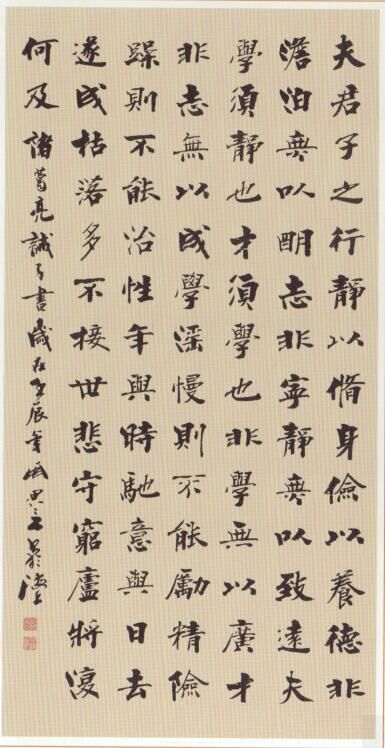 夫君子之行靜以脩身儉以養德非
澹泊無以明志非寧靜無以致遠夫
學須靜也才須學也非學無以廣才
非志無以成學滛慢則不能勵精險
躁則不能治性年與時馳意與日去
遂成枯落多不接世悲守窮廬將復
何及 諸葛亮誡子書歲在壬辰年